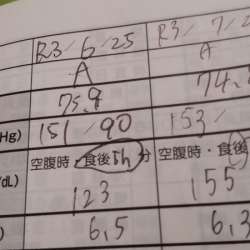 R3/6/25 R3/7/2
A A
75.9 74.
Hg) 151/90 153/
/dL) 空腹時・食後5h分 空腹時・食後
123 155
) 6.5 6.3